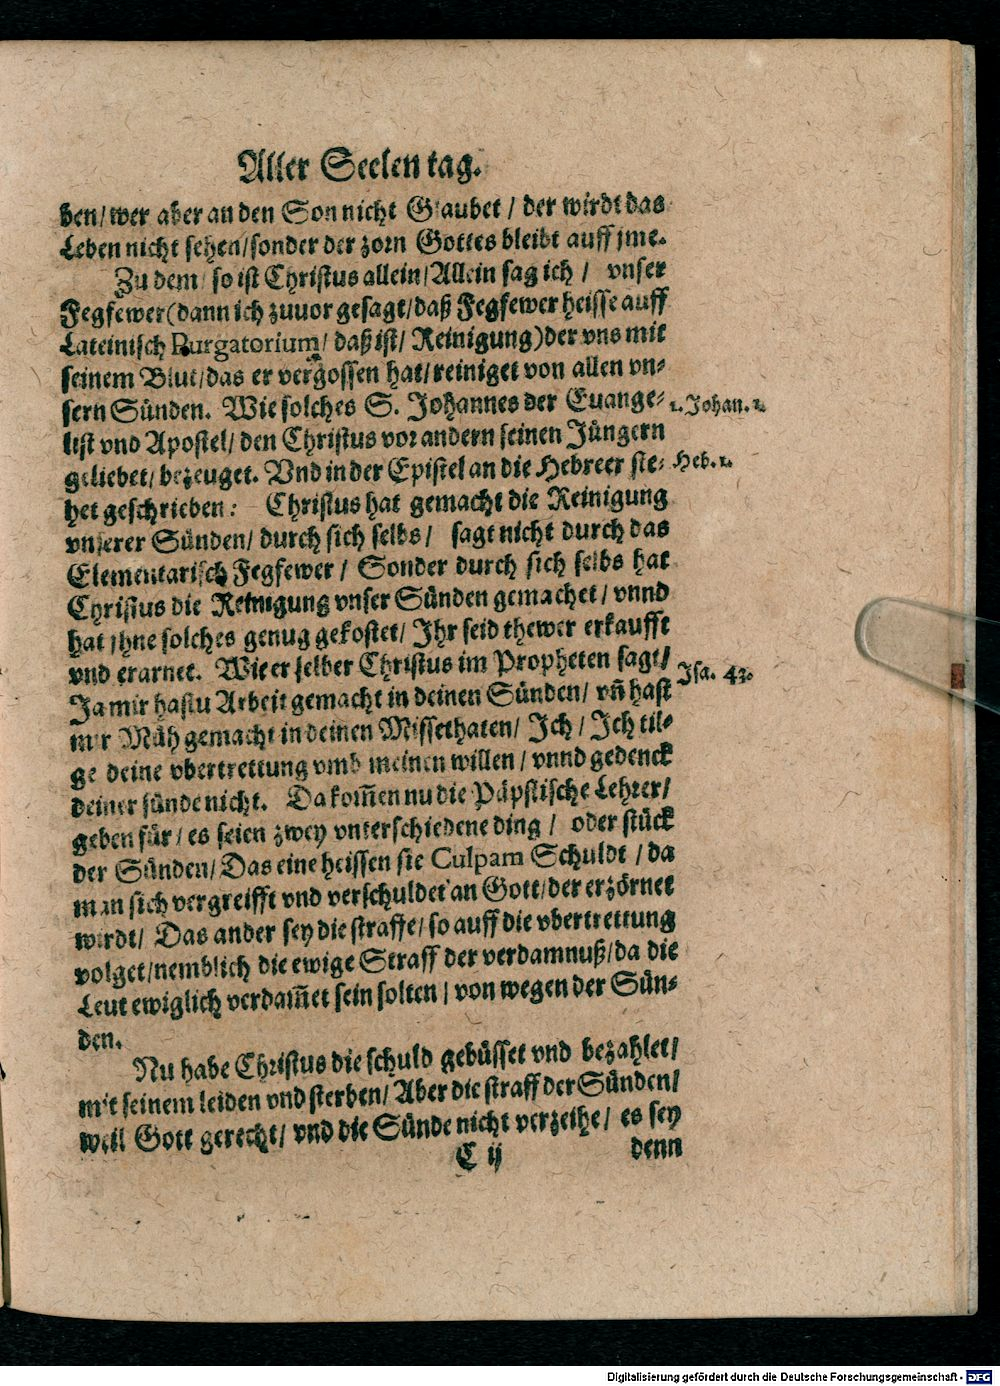 Aller Seelen tag.
ben/ wer aber an den Son nicht Glaubet / der wirdt das
Leben nicht sehen/ sonder der zorn Gottes bleibt auff jme.
Zu dem/ so ist Christus allein/ Allein sag ich / vnser
Fegfewer (dann ich zuuor gesagt/ daß Fegfewer heisse auff
Lateinisch Purgatorium/ daß ist/ Reinigung) der vns mit
seinem Blut/ das er vergossen hat/ reiniget von allen vn-
sern Sünden. Wie solches S. Johannes der Euange- 1. Johan. 1.
list vnd Apostel/ den Christus vor andern seinen Jüngern
geliebet/ bezeuget. Vnd in der Epistel an die Hebreer ste- Heb. 1.
het geschrieben: Christus hat gemacht die Reinigung
vnserer Sünden/ durch sich selbs / sagt nicht durch das
Elementarisch Fegfewer / Sonder durch sich selbs hat
Christus die Reinigung vnser Sünden gemachet / vnnd
hat jhne solches genug gekostet/ Ihr seid thewer erkaufft
vnd erarnet. Wie er selber Christus im Propheten sagt/ Isa. 43.
Ja mir hastu Arbeit gemacht in deinen Sünden/ vn̄ hast
mir Müh gemacht in deinen Missethaten/ Ich / Ich til-
ge deine vbertrettung vmb meinen willen / vnnd gedenck
deiner sünde nicht. Da kom̄en nu die Päpstische Lehrer/
geben für / es seien zwey vnterschiedene ding / oder stück
der Sünden/ Das eine heissen sie Culpam Schuldt / da
man sich vergreifft vnd verschuldet an Gott/ der erzörnet
wirdt/ Das ander sey die straffe/ so auff die vbertrettung
volget/ nemblich die ewige Straff der verdamnuß/ da die
Leut ewiglich verdam̄et sein solten / von wegen der Sün-
den.
Nu habe Christus die schuld gebüsset vnd bezahlet/
mit seinem leiden vnd sterben/ Aber die straff der Sünden/
weil Gott gerecht/ vnd die Sünde nicht verzeihe / es sey
C ij denn
Digitalisierung gefördert durch die Deutsche Forschungsgemeinschaft - DFG